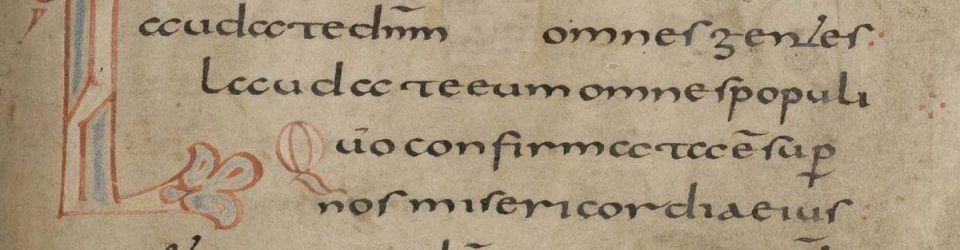 Laudate dnm̄ omnes gentes:
Laudate eum omnes populi
Qūo confirmata ē sup̱
nos misericordia eius: